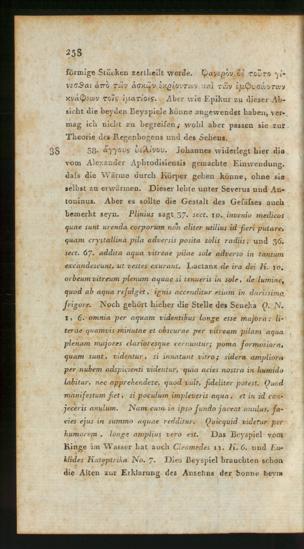 238
förmige Stücken zertheilt werde. Φανερὸν δὲ τοῦτο γί-
νεσθαι ἀπὸ τῶν ἀσκῶν ἐκρέοντων καὶ τῶν ἐμφυσώντων
κνάφων τοῖς ἱματίοις. Aber wie Epikur zu dieser Ab-
sicht die beyden Beyspiele könne angewendet haben, ver-
mag ich nicht zu begreifen; wohl aber passen sie zur
Theorie des Regenbogens und des Sehens.
38
38. ἄγγους ὑελίνου. Johannes widerlegt hier die
vom Alexander Aphtodisiensis gemachte Einwendung,
dafs die Wärme durch Körper gehen könne, ohne sie
selbst zu erwärmen. Dieser lebte unter Severus und An-
toninus. Aber es sollte die Gestalt des Gefäfses auch
bemerkt seyn. Plinius sagt 37. sect. 10. invenio medicos
quae sunt urenda corporum non aliter utilius id fieri putare,
quam crystallina pila adversis posita solis radiis; und 36.
sect. 67. addita aqua vitreae pilae sole adverso in tantum
excandescunt, ut vestes exurant. Lactanz de ira dei K. 10.
orbem vitreum plenum aquae si tenueris in sole, de lumine,
quod ab aqua refulget, ignis accenditur etiam in durissimo
frigore. Noch gehört hieher die Stelle des Seneka Q. N.
1, 6. omnia per aquam videntibus longe esse majora: li-
terae quamvis minutae et obscurae per vitream pilam aqua
plenam majores clarioresque cernuntur; poma formosiora,
quam sunt, videntur, si innatant vitro; sidera ampliora
per nubem adspicienti videntur, quia acies nostra in humido
labitur, nec apprehendere, quod vult, fideliter potest. Quod
manifestum fiet, si poculum impleveris aqua, et in id con-
jeceris anulum. Nam cum in ipso fundo jaceat anulus, fa-
cies ejus in summo aquae redditur. Quicquid videtur per
humorem, longe amplius vero est. Das Beyspiel vom
Ringe im Wasser hat auch Cleomedes 11. K. 6. und Eu-
klides Katoptrika No. 7. Dies Beyspiel brauchten schon
die Alten zur Erklärung des Ansehns der Sonne beym